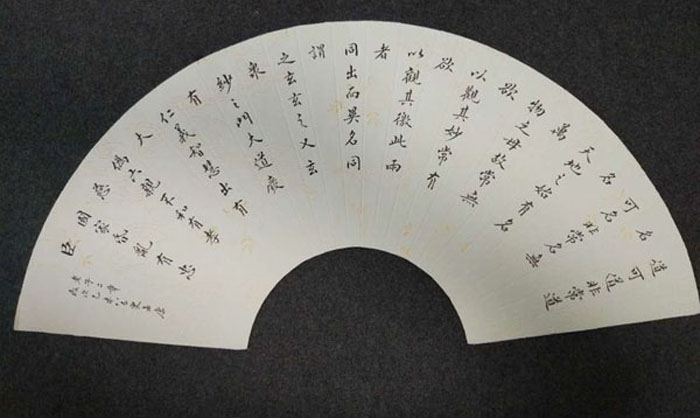 道可道非常道
名
可名非常名無
名
天地之始有名
萬
物之母故常無
欲
以觀其妙常有
欲
以觀其徼此兩
者
同出而異名同
謂
之玄玄之又玄
眾
妙之門大道廢
有
仁義智慧出有
大
偽六親不和有孝
慈
國家昏亂有忠
臣
老子二章